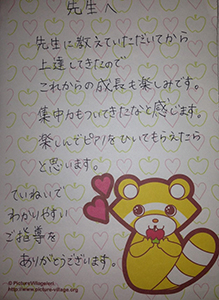 先生へ
先生に教えていただいてから
上達してきたので
これからの成長も楽しみです。
集中力もついてきたなと感じます。
楽しんでピアノをひいてもらえたら
と思います。
ていねいで
わかりやすい
ご指導を
ありがとうございます。
© PictureVillage/art
http://www.picture-village.org